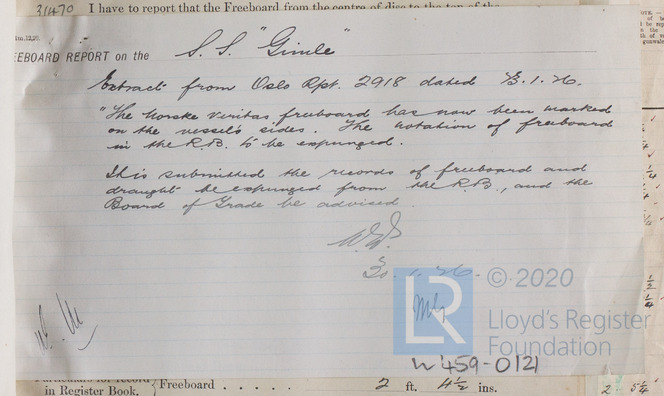 31470 I have to report that the Freeboard from the centre of disc to the top of the
EEBOARD REPORT on the S.S. "Gimle"
Extract from Oslo Rpt. 2918 dated
"The Norske Veritas freeboard has now been marked
on the vessel's sides. The notation of freeboard
in the R.B. to be expunged.
It is submitted the records of freeboard and
draught be expunged from the R.B., and the
Board of Trade be advised
© 2020
LR
Lloyd's Register
Foundation
W459-0121
in Register Book. { Freeboard . . . . . 2 ft. 4½ ins.
2 - 5¼